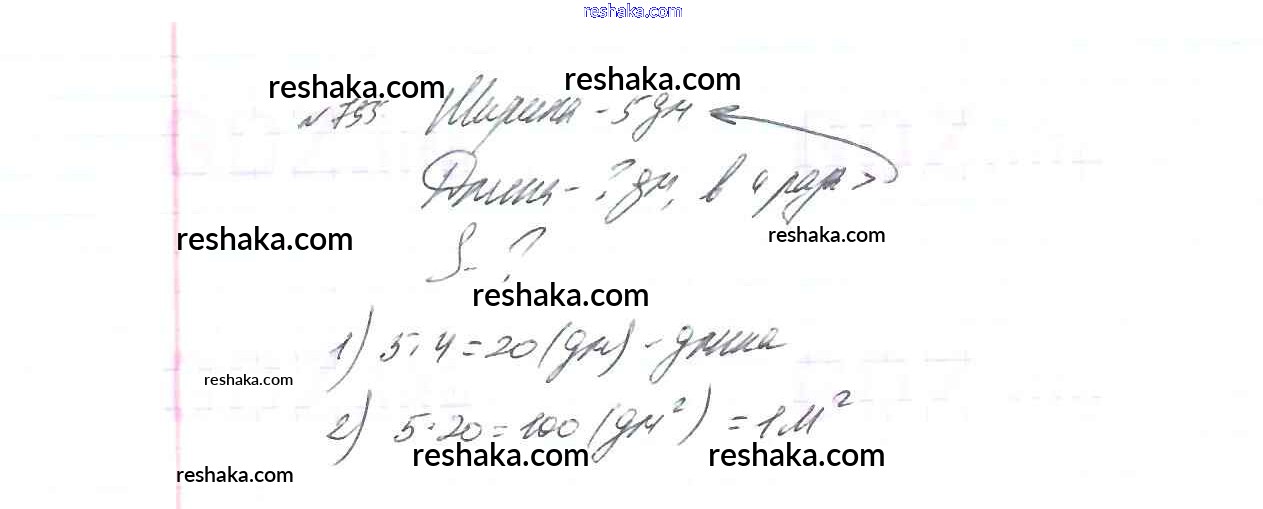 reshaka.com
reshaka.com reshaka.com
№ 795. Ширина - 5 дм
Длина - ? дм, в 4 раза >
reshaka.com reshaka.com
S - ?
reshaka.com
1) 5 · 4 = 20 (дм) - длина
reshaka.com
2) 5 · 20 = 100 (дм²) = 1 м²
reshaka.com reshaka.com
reshaka.com